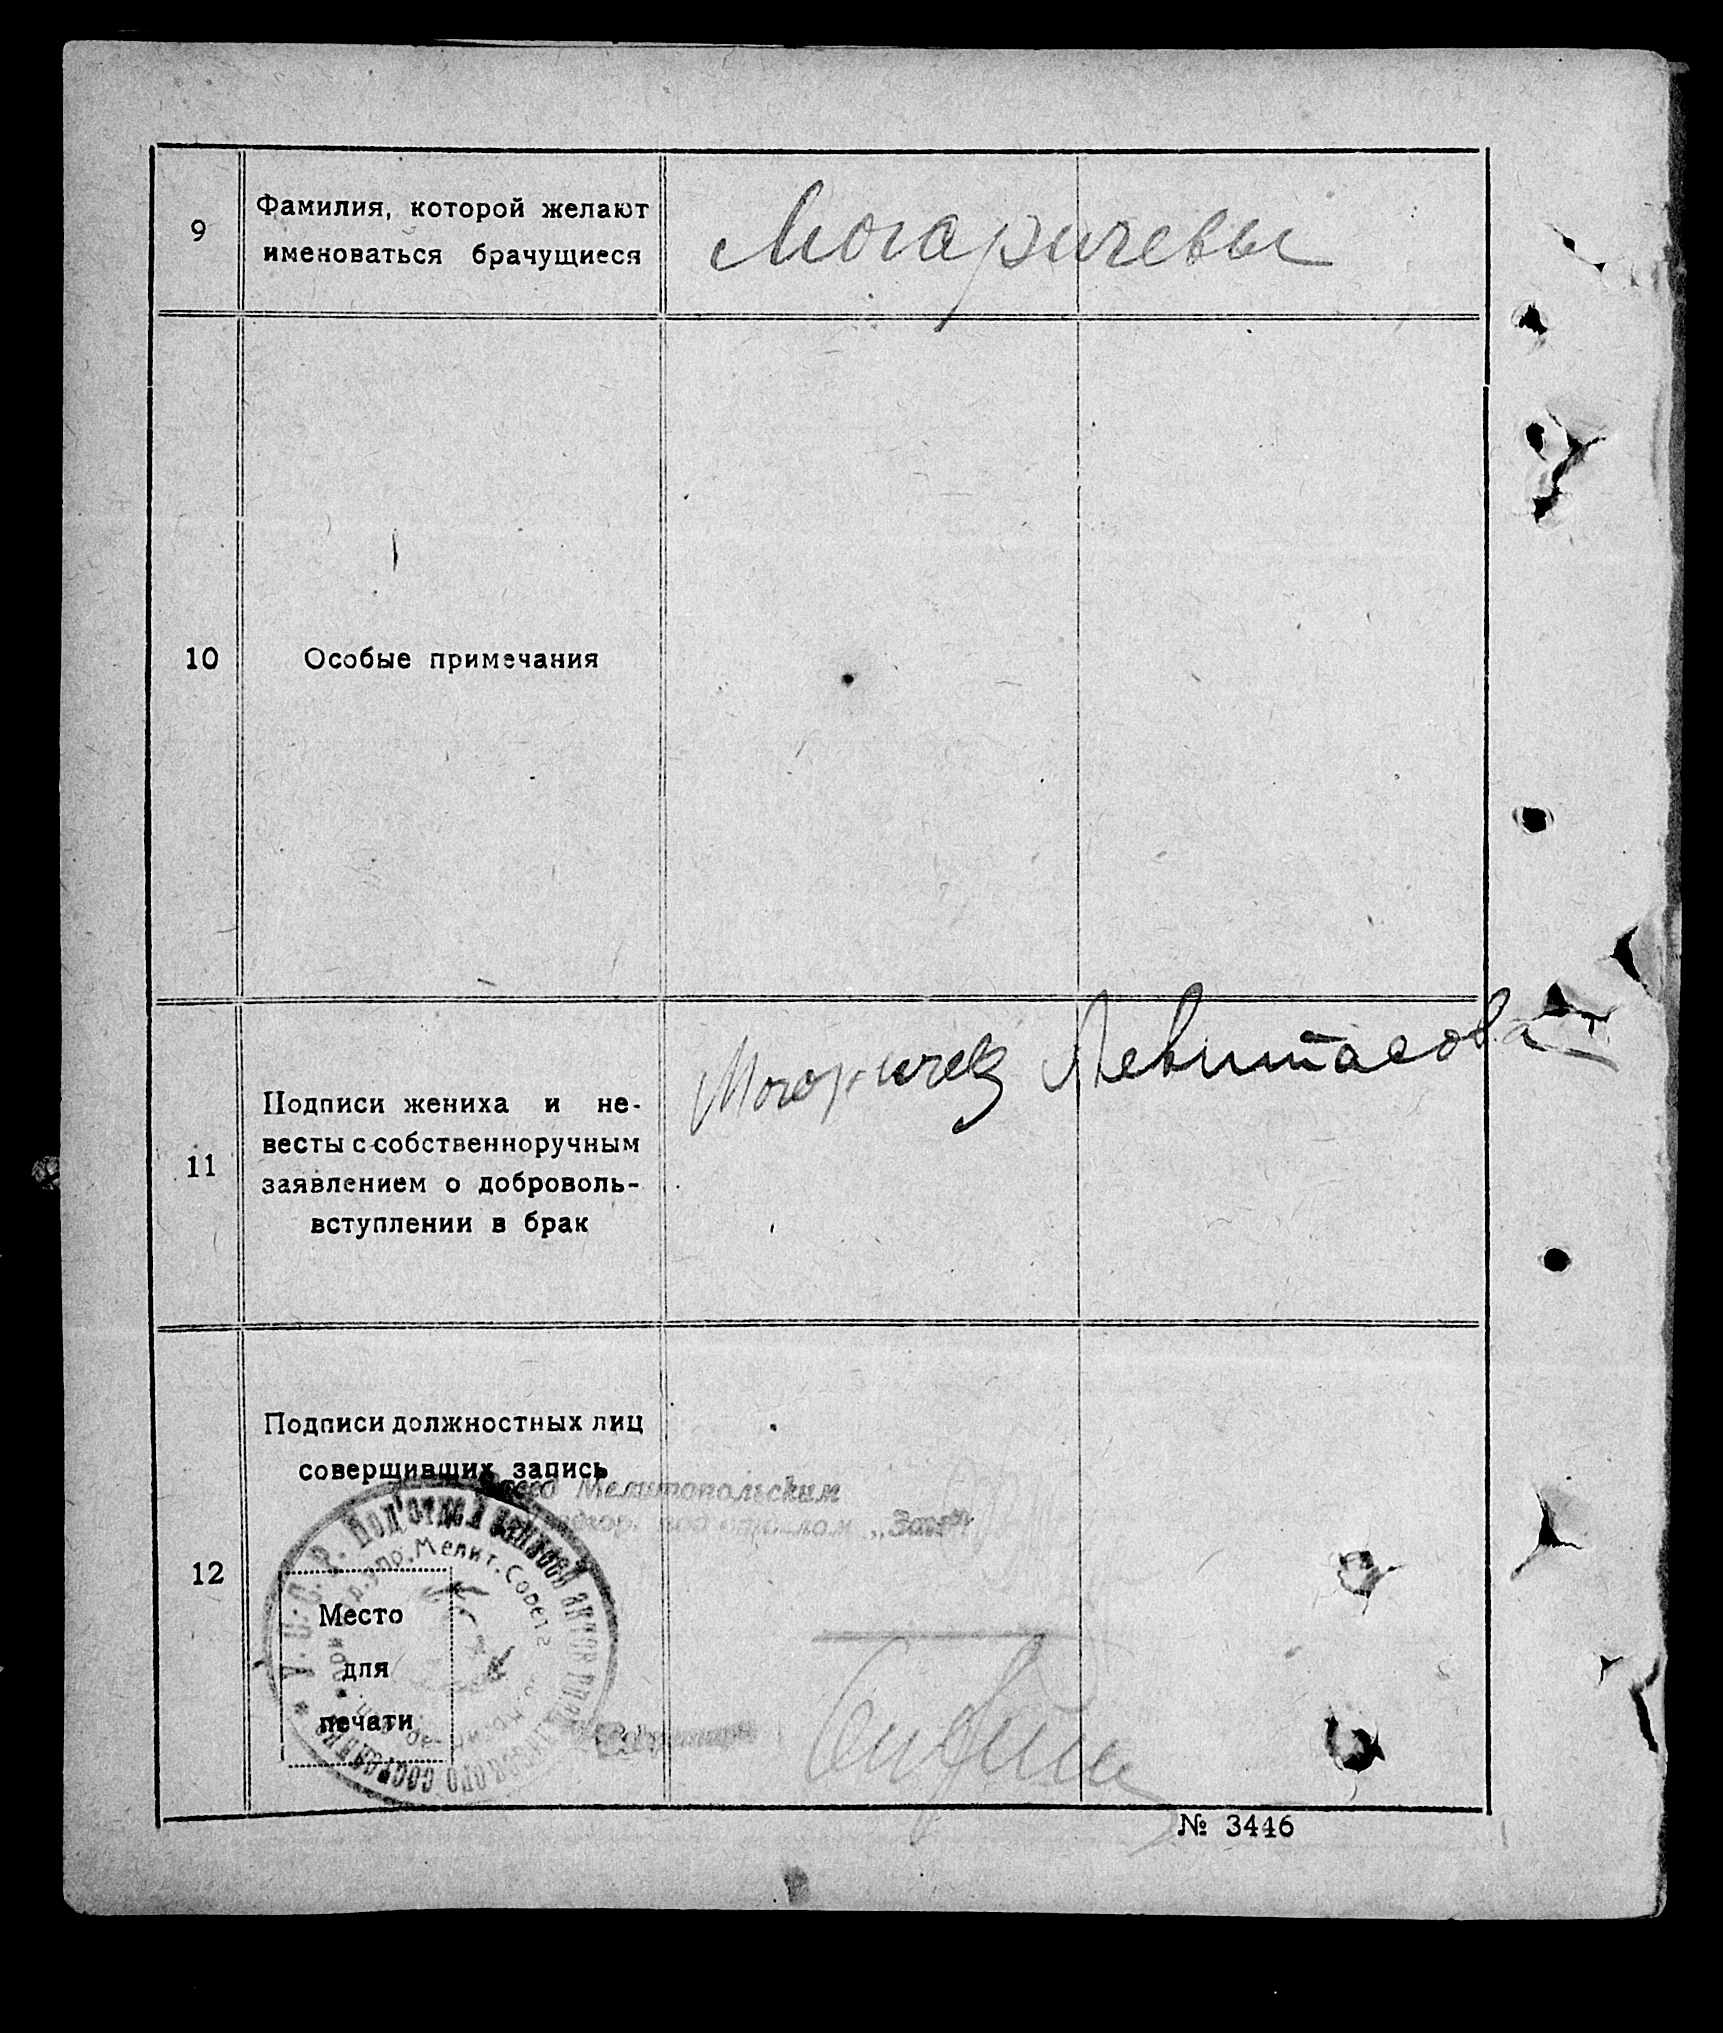 9
Фамилия, которой желают
именоваться брачущиеся
Могаричевы
10
Особые примечания
11
Подписи жениха и не-
весты с собственноручным
заявлением о доброволь-
вступлении в брак
Могаричев Левитасова
12
Подписи должностных лиц
совершивших запись
Мелитопольским
Место
для
печати
№ 3446